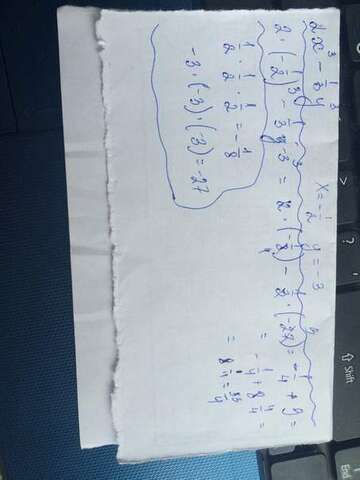 2x³ - 1/3 y³ x = -1/2 y = -3
2 · (-1/2)³ - 1/3 · -3³ = 2 · (-1/8) - 1/3 · (-27) = -1/4 + 9 =
= -1/4 + 8 4/4 =
= 8 3/4 = 35/4
1/2 · 1/2 · 1/2 = -1/8
-3 · (-3) · (-3) = -27
Shift
End